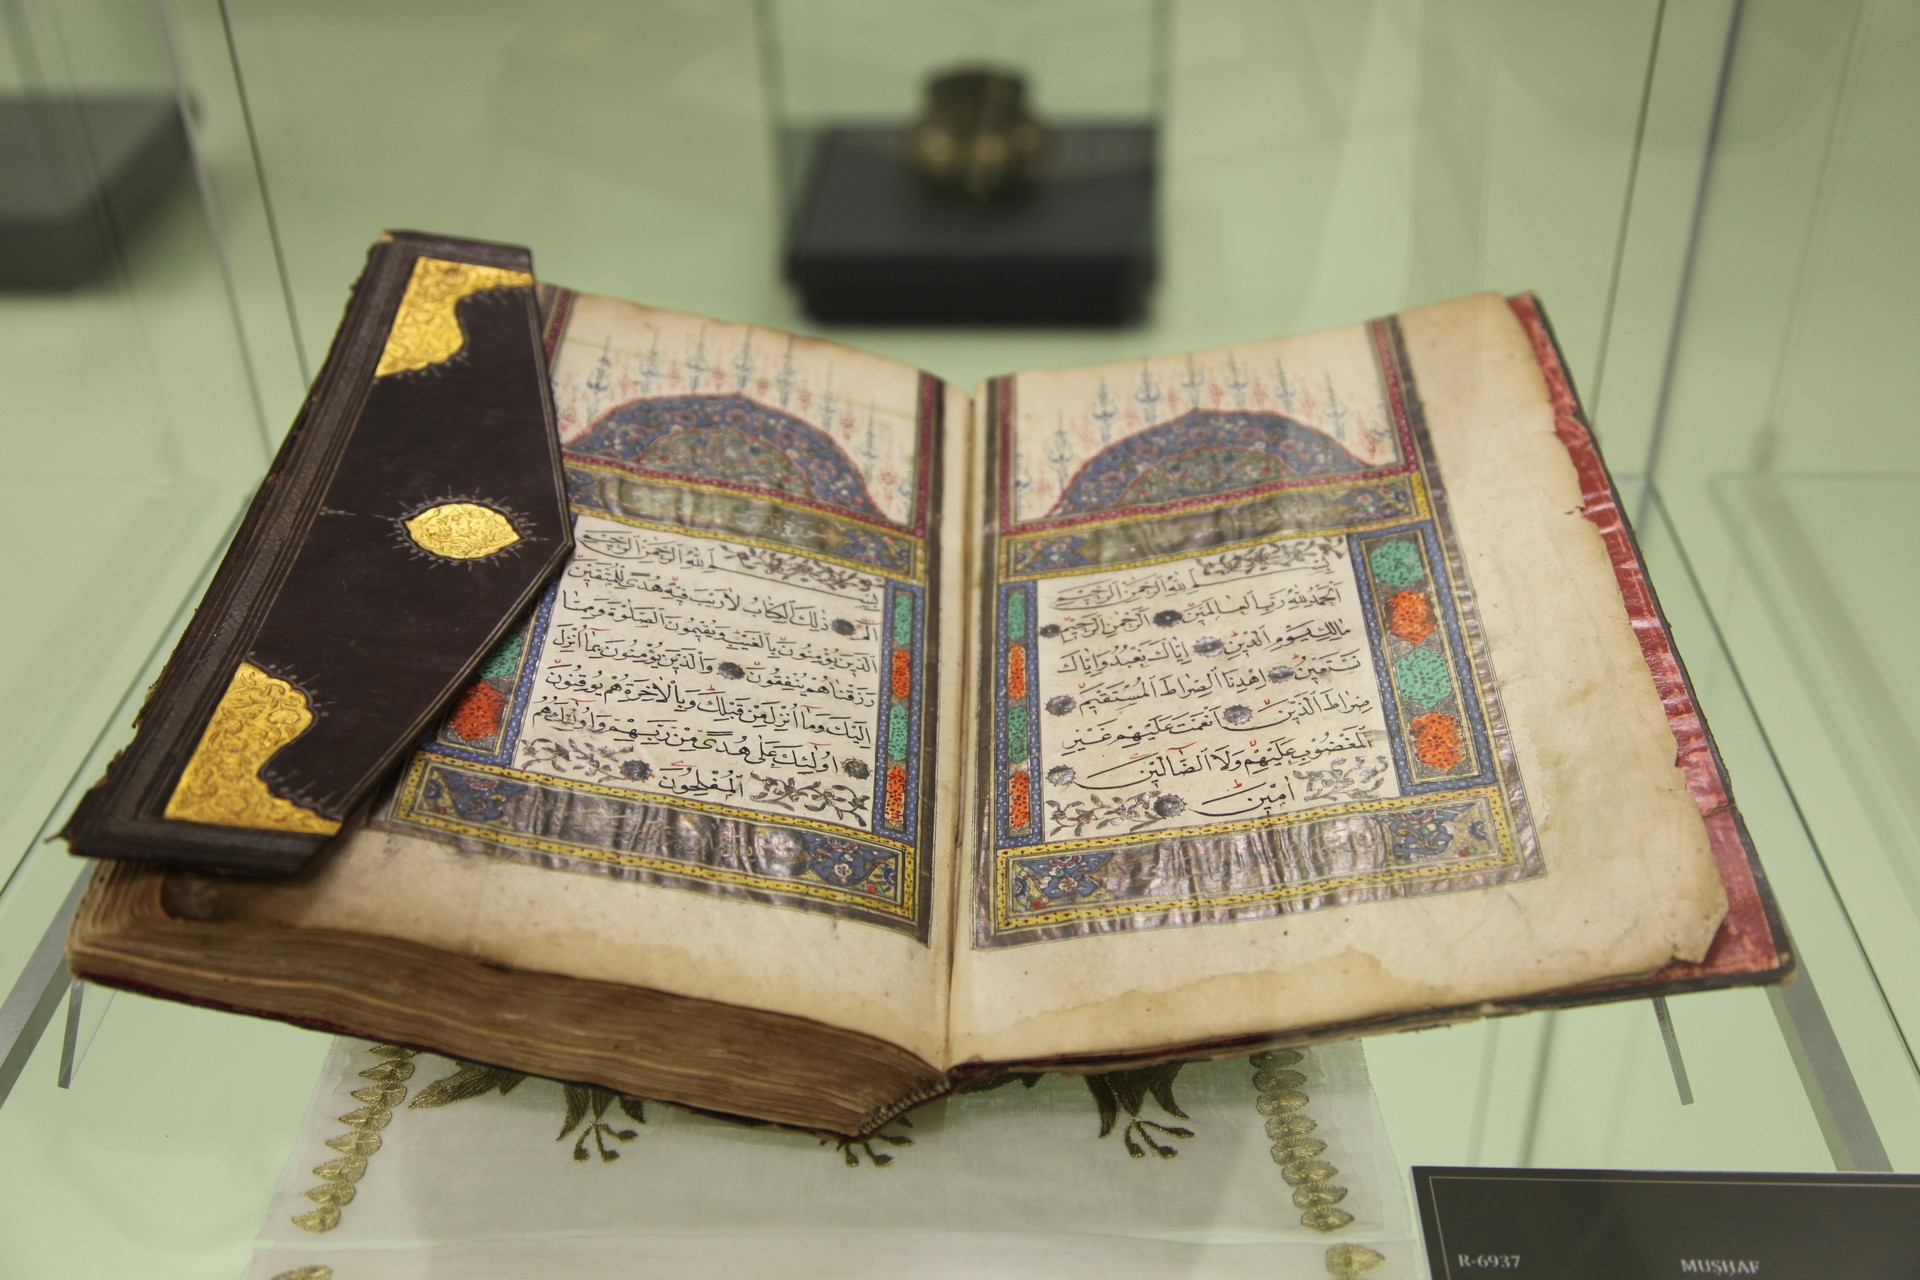 بسم الله الرحمن الرحيم
الحمد لله رب العالمين الرحمن الرحيم
مالك يوم الدين اياك نعبد واياك
نستعين اهدنا الصراط المستقيم
صراط الذين انعمت عليهم غير
المغضوب عليهم ولا الضالين
امين
بسم الله الرحمن الرحيم
الم ذلك الكتاب لا ريب فيه هدى للمتقين
الذين يؤمنون بالغيب ويقيمون الصلوة ومما
رزقناهم ينفقون والذين يؤمنون بما انزل
اليك وما انزل من قبلك وبالاخرة هم يوقنون
اولئك على هدى من ربهم واولئك هم
المفلحون
R-6937 MUSHAF